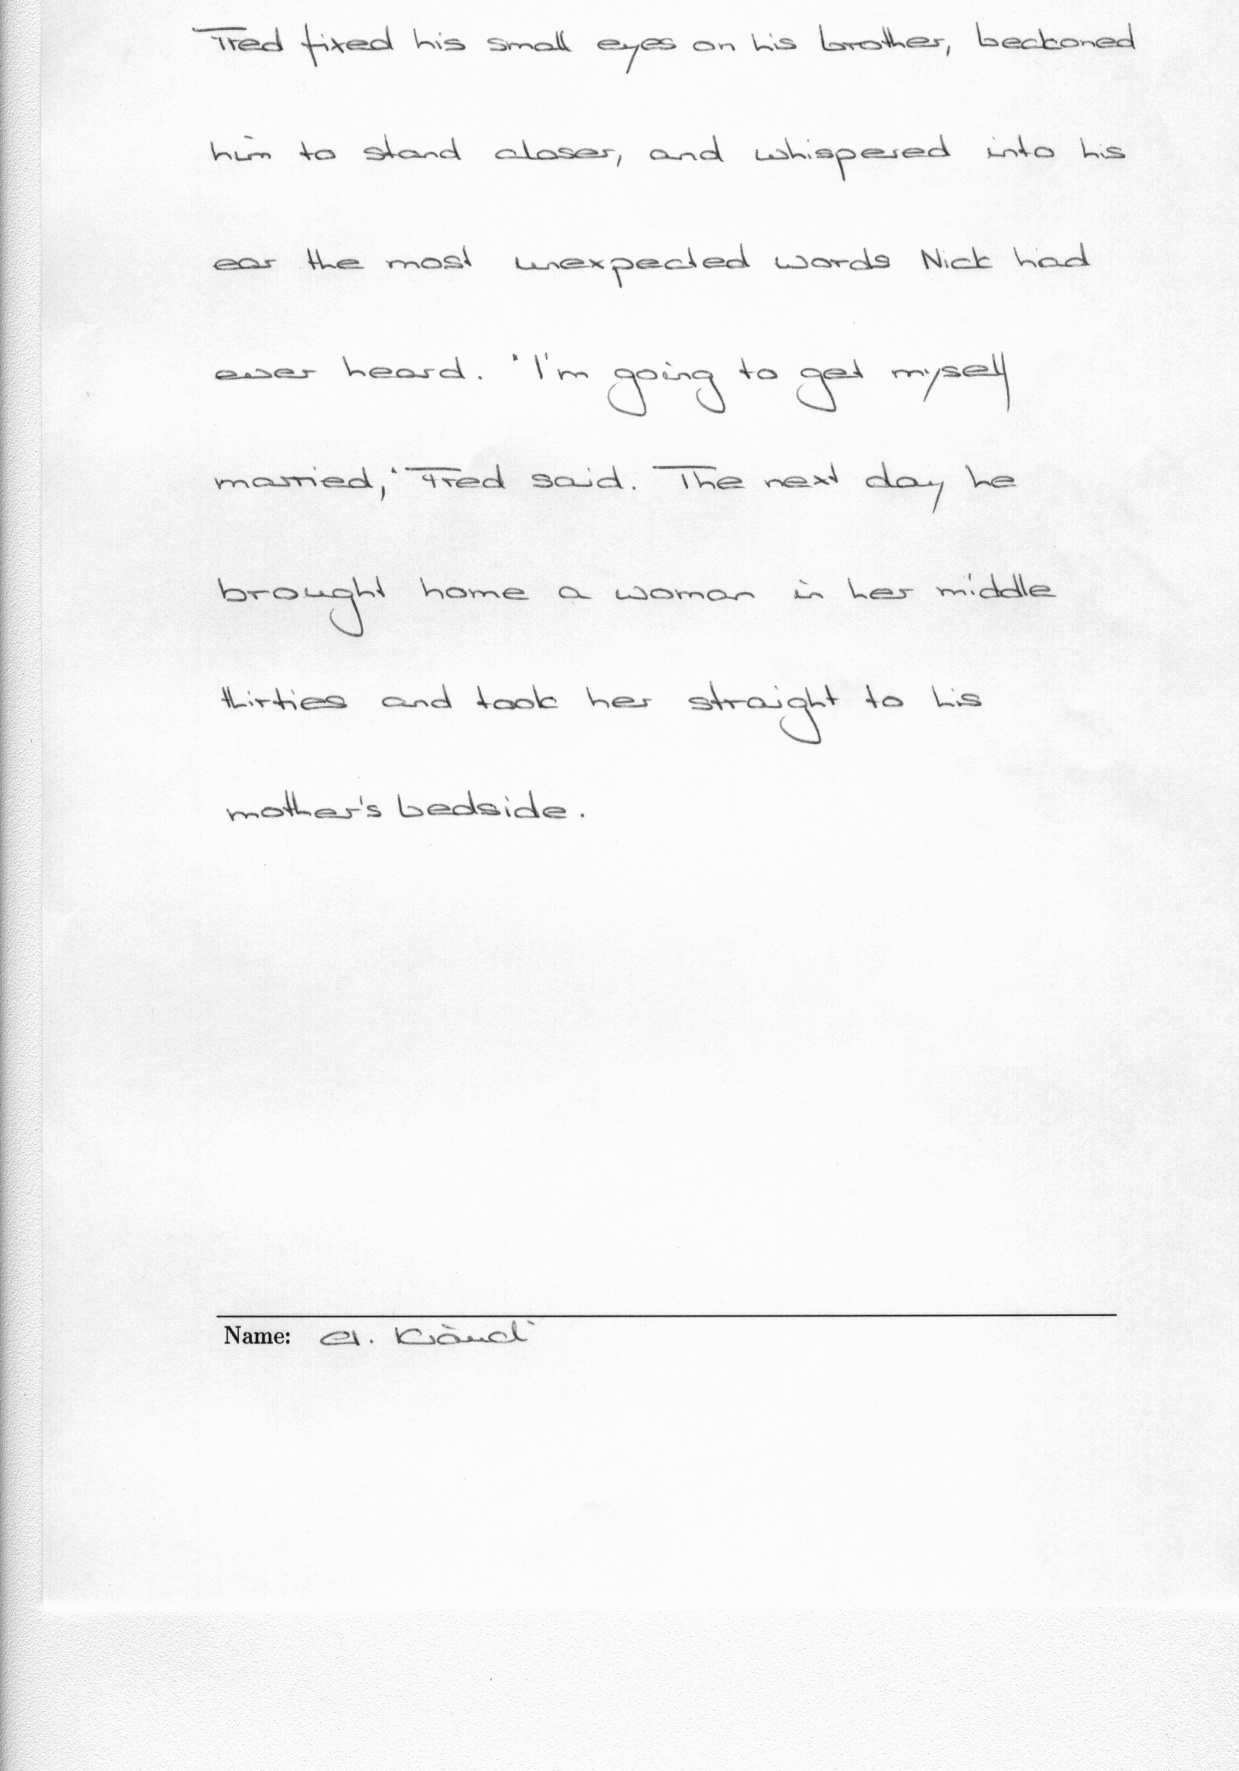 Fred fixed his small eyes on his brother, beckoned
him to stand closer, and whispered into his
ear the most unexpected words Nick had
ever heard. 'I'm going to get myself
married,' Fred said. The next day he
brought home a woman in her middle
thirties and took her straight to his
mother's bedside.
Name: